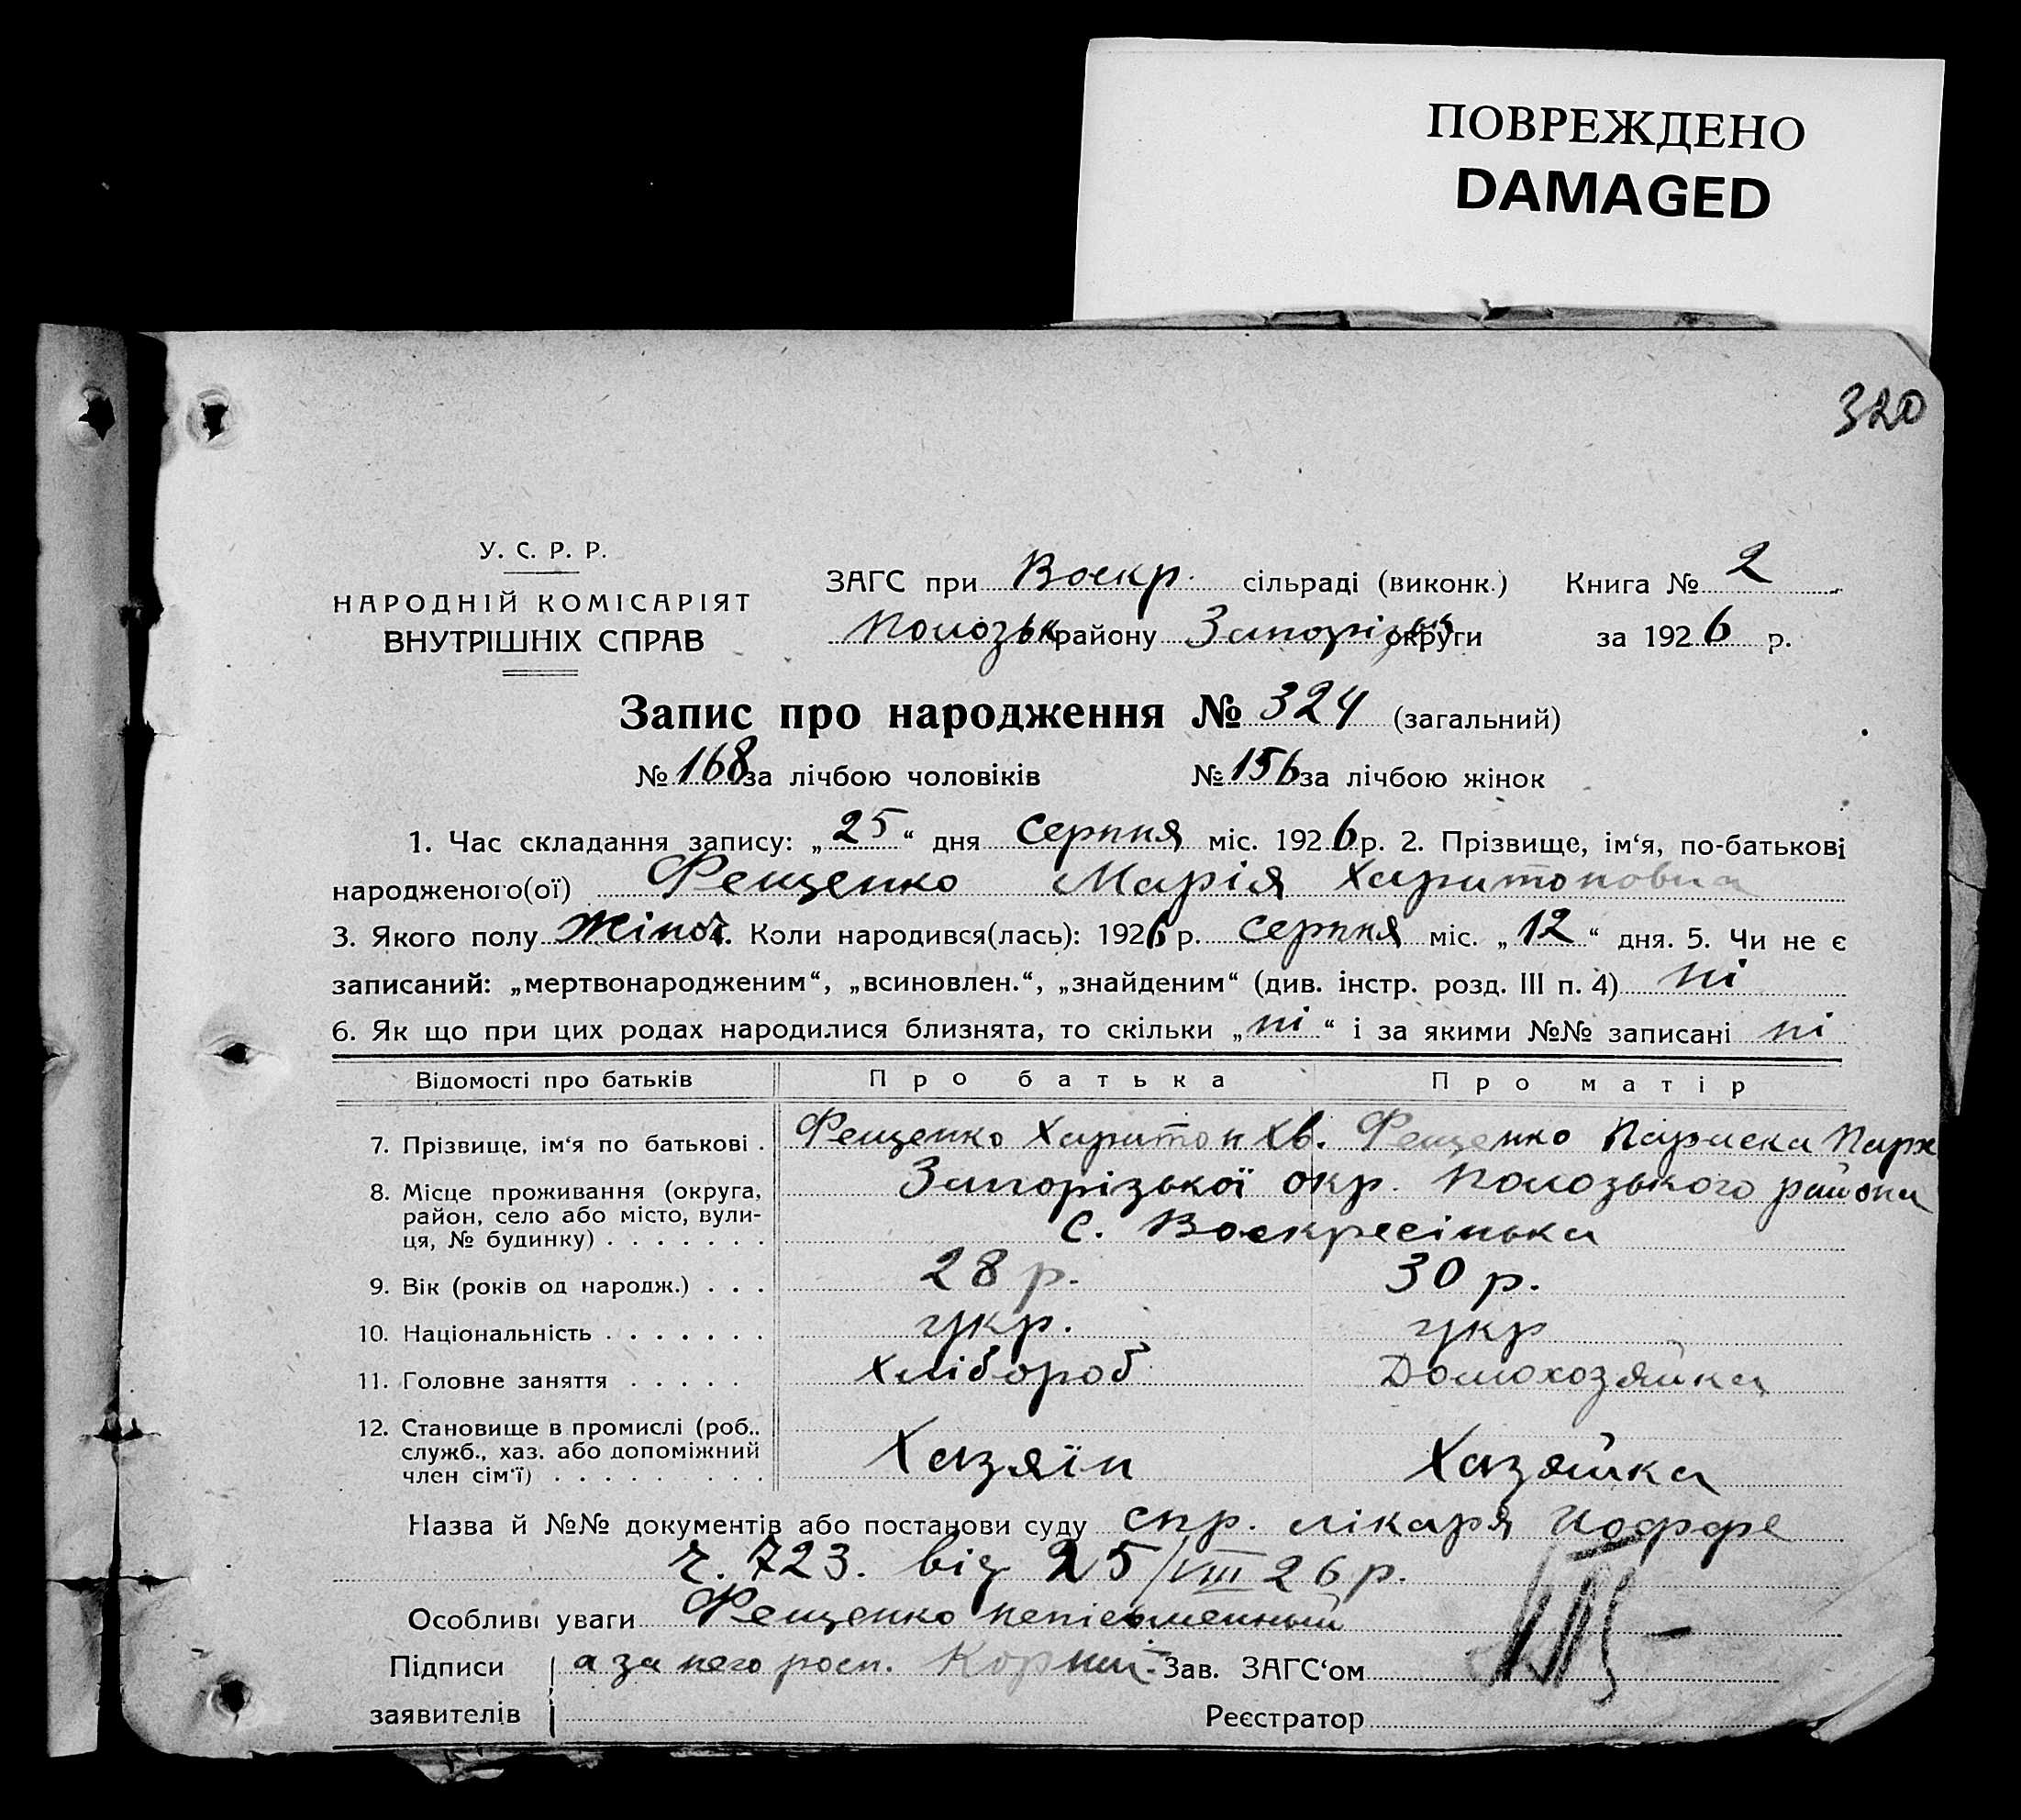 ПОВРЕЖДЕНО
DAMAGED
320
У. С. Р. Р.
НАРОДНІЙ КОМІСАРІЯТ
ВНУТРІШНІХ СПРАВ
ЗАГС при Воскр. сільраді (виконк.) Книга № 2
Полозьк району Запорізьк округи за 1926 р.
Запис про народження № 324 (загальний)
№ 168 за лічбою чоловіків № 156 за лічбою жінок
1. Час складання запису: „25“ дня серпня міс. 1926 р. 2. Прізвище, ім‘я, по-батькові
народженого(ої) Фещенко Марія Харитоновна
3. Якого полу Жіноч. 4. Коли народився(лась): 1926 р. серпня міс. „12“ дня. 5. Чи не є
записаний: „мертвонародженим“, „всиновлен.“, „знайденим“ (див. інстр. розд. III п. 4) ні
6. Як що при цих родах народилися близнята, то скільки „ні“ і за якими №№ записані ні
Відомості про батьків Про батька Про матір
7. Прізвище, ім‘я по батькові . Фещенко Харитон Хв. Фещенко Параска Парх
8. Місце проживання (округа, район, село або місто, вулиця, № будинку) . . . . . . . Запорізької окр. Полозького района
с. Воскресінька
9. Вік (років од народж.) . . . 28 р. 30 р.
10. Національність . . . . . . . укр. укр
11. Головне заняття . . . . . Хлібороб Домохозяйка
12. Становище в промислі (роб.. служб., хаз. або допоміжний член сім‘ї) . . . . . . . . Хазяїн Хазяйка
Назва й №№ документів або постанови суду спр. лікаря Иоффе
ч. 723. від 25/VIII 26 р.
Особливі уваги Фещенко непісьменный
Підписи а за него росп. Зав. ЗАГС‘ом
заявителів Реєстратор